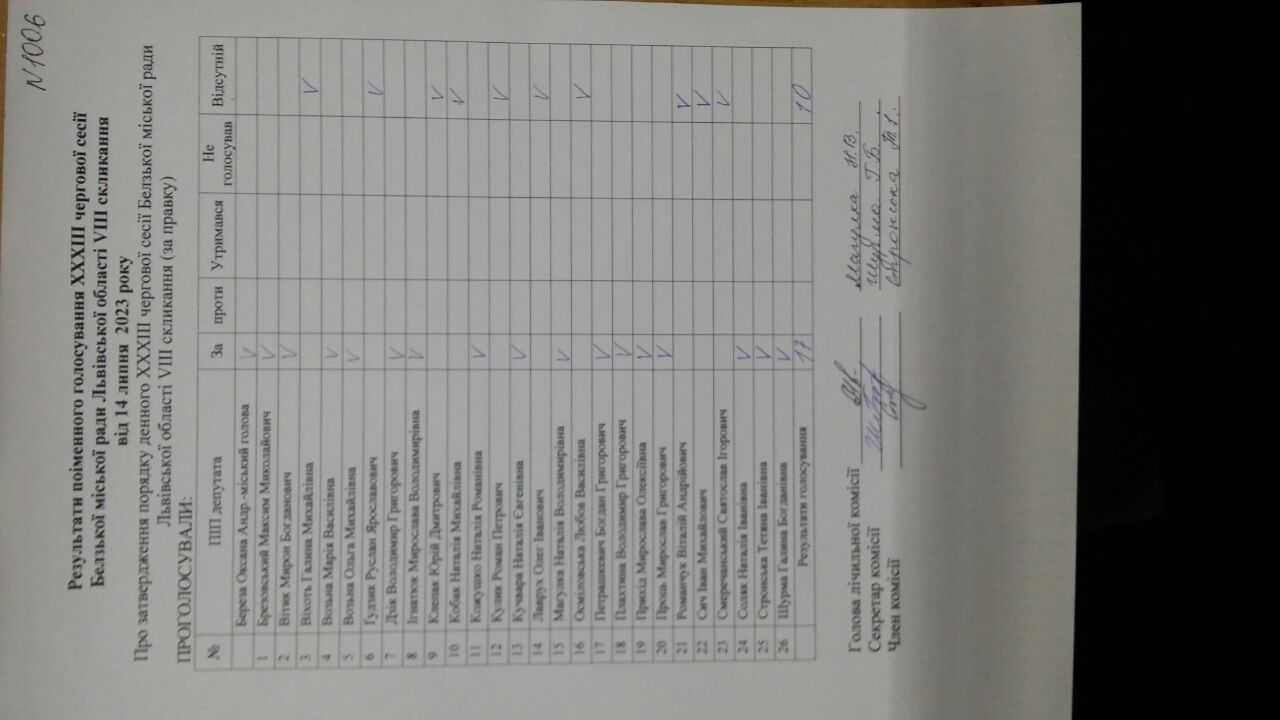 N 100.6
Результати поіменного голосування XXXIII чергової сесії
Белзької міської ради Львівської області VIII скликання
від 14 липня 2023 року
Про затвердження порядку денного XXXIII чергової сесії Белзької міської ради
Львівської області VIII скликання (за правку)
ПРОГОЛОСУВАЛИ:
№ ПІП депутата За проти Утримався Не голосував Відсутній
Береза Оксана Андр.-міський голова V
1 Бреховський Максим Миколайович V
2 Вітик Мирон Богданович V
3 Віхоть Галина Михайлівна V
4 Вольна Марія Василівна V
5 Вольна Ольга Михайлівна V
6 Гудзик Руслан Ярославович V
7 Дрік Володимир Григорович V
8 Ігнатюк Мирослава Володимирівна V
9 Клепак Юрій Дмитрович V
10 Кобак Наталія Михайлівна V
11 Кожушко Наталія Романівна V
12 Кулик Роман Петрович V
13 Кучвара Наталія Євгенівна V
14 Лаврух Олег Іванович V
15 Магулка Наталія Володимирівна V
16 Осміловська Любов Василівна V
17 Петрашкевич Богдан Григорович V
18 Плахтина Володимир Григорович V
19 Прихід Мирослава Олексіївна V
20 Пронь Мирослав Григорович V
21 Романчук Віталій Андрійович V
22 Сич Іван Михайлович V
23 Смеречанський Святослав Ігорович V
24 Соляк Наталія Іванівна V
25 Стронська Тетяна Іванівна V
26 Щурма Галина Богданівна V
Результати голосування 17 10
Голова лічильної комісії Магулка Н.В.
Секретар комісії Щурма Г.Б.
Член комісії Стронська Т.І.